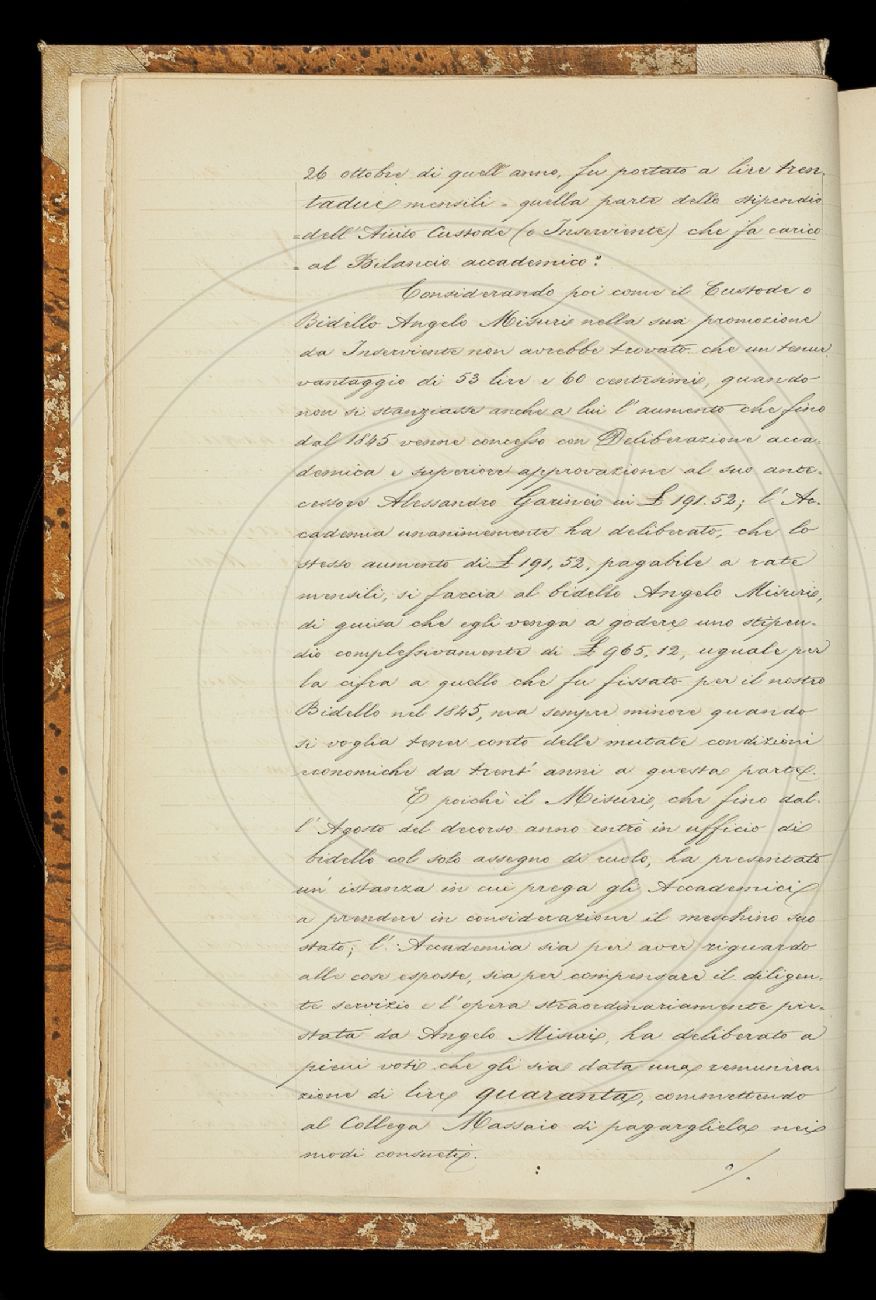 26 ottobre di quell'anno, fu portato a lire tren-
tadue mensili - quella parte dello stipendio
-dell'Aiuto Custode (o Inserviente) che fa carico
- al Bilancio accademico":
Considerando poi come il Custode o
Bidello Angelo Misuri nella sua promozione
da Inserviente non avrebbe trovato che un tenue
vantaggio di 53 lire e 60 centesimi, quando
non si stanziasse anche a lui l'aumento che fino
dal 1845 venne concesso con Deliberazione acca-
demica e superiore approvazione al suo ante-
cessore Alessandro Garinei in £ 191.52; l'Ac-
cademia unanimemente ha deliberato, che lo
stesso aumento di £ 191,52, pagabile a rate
mensili, si faccia al bidello Angelo Misuri,
di guisa che egli venga a godere uno stipen-
dio complessivamente di £ 965,12, uguale per
la cifra a quello che fu fissato per il nostro
Bidello nel 1845, ma sempre minore quando
si voglia tener conto delle mutate condizioni
economiche da trent'anni a questa parte.
E poichè il Misuri, che fino dal-
l'Agosto del decorso anno entrò in ufficio di
bidello col solo assegno di ruolo, ha presentato
un'istanza in cui prega gli Accademici
a prendere in considerazione il meschino suo
stato; l'Accademia sia per aver riguardo
alle cose esposte, sia per compensare il diligen-
te servizio e l'opera straordinariamente pre-
stata da Angelo Misuri, ha deliberato a
pieni voti che gli sia data una remunera-
zione di lire quaranta, commettendo
al Collega Massaio di pagargliela nei
modi consueti.